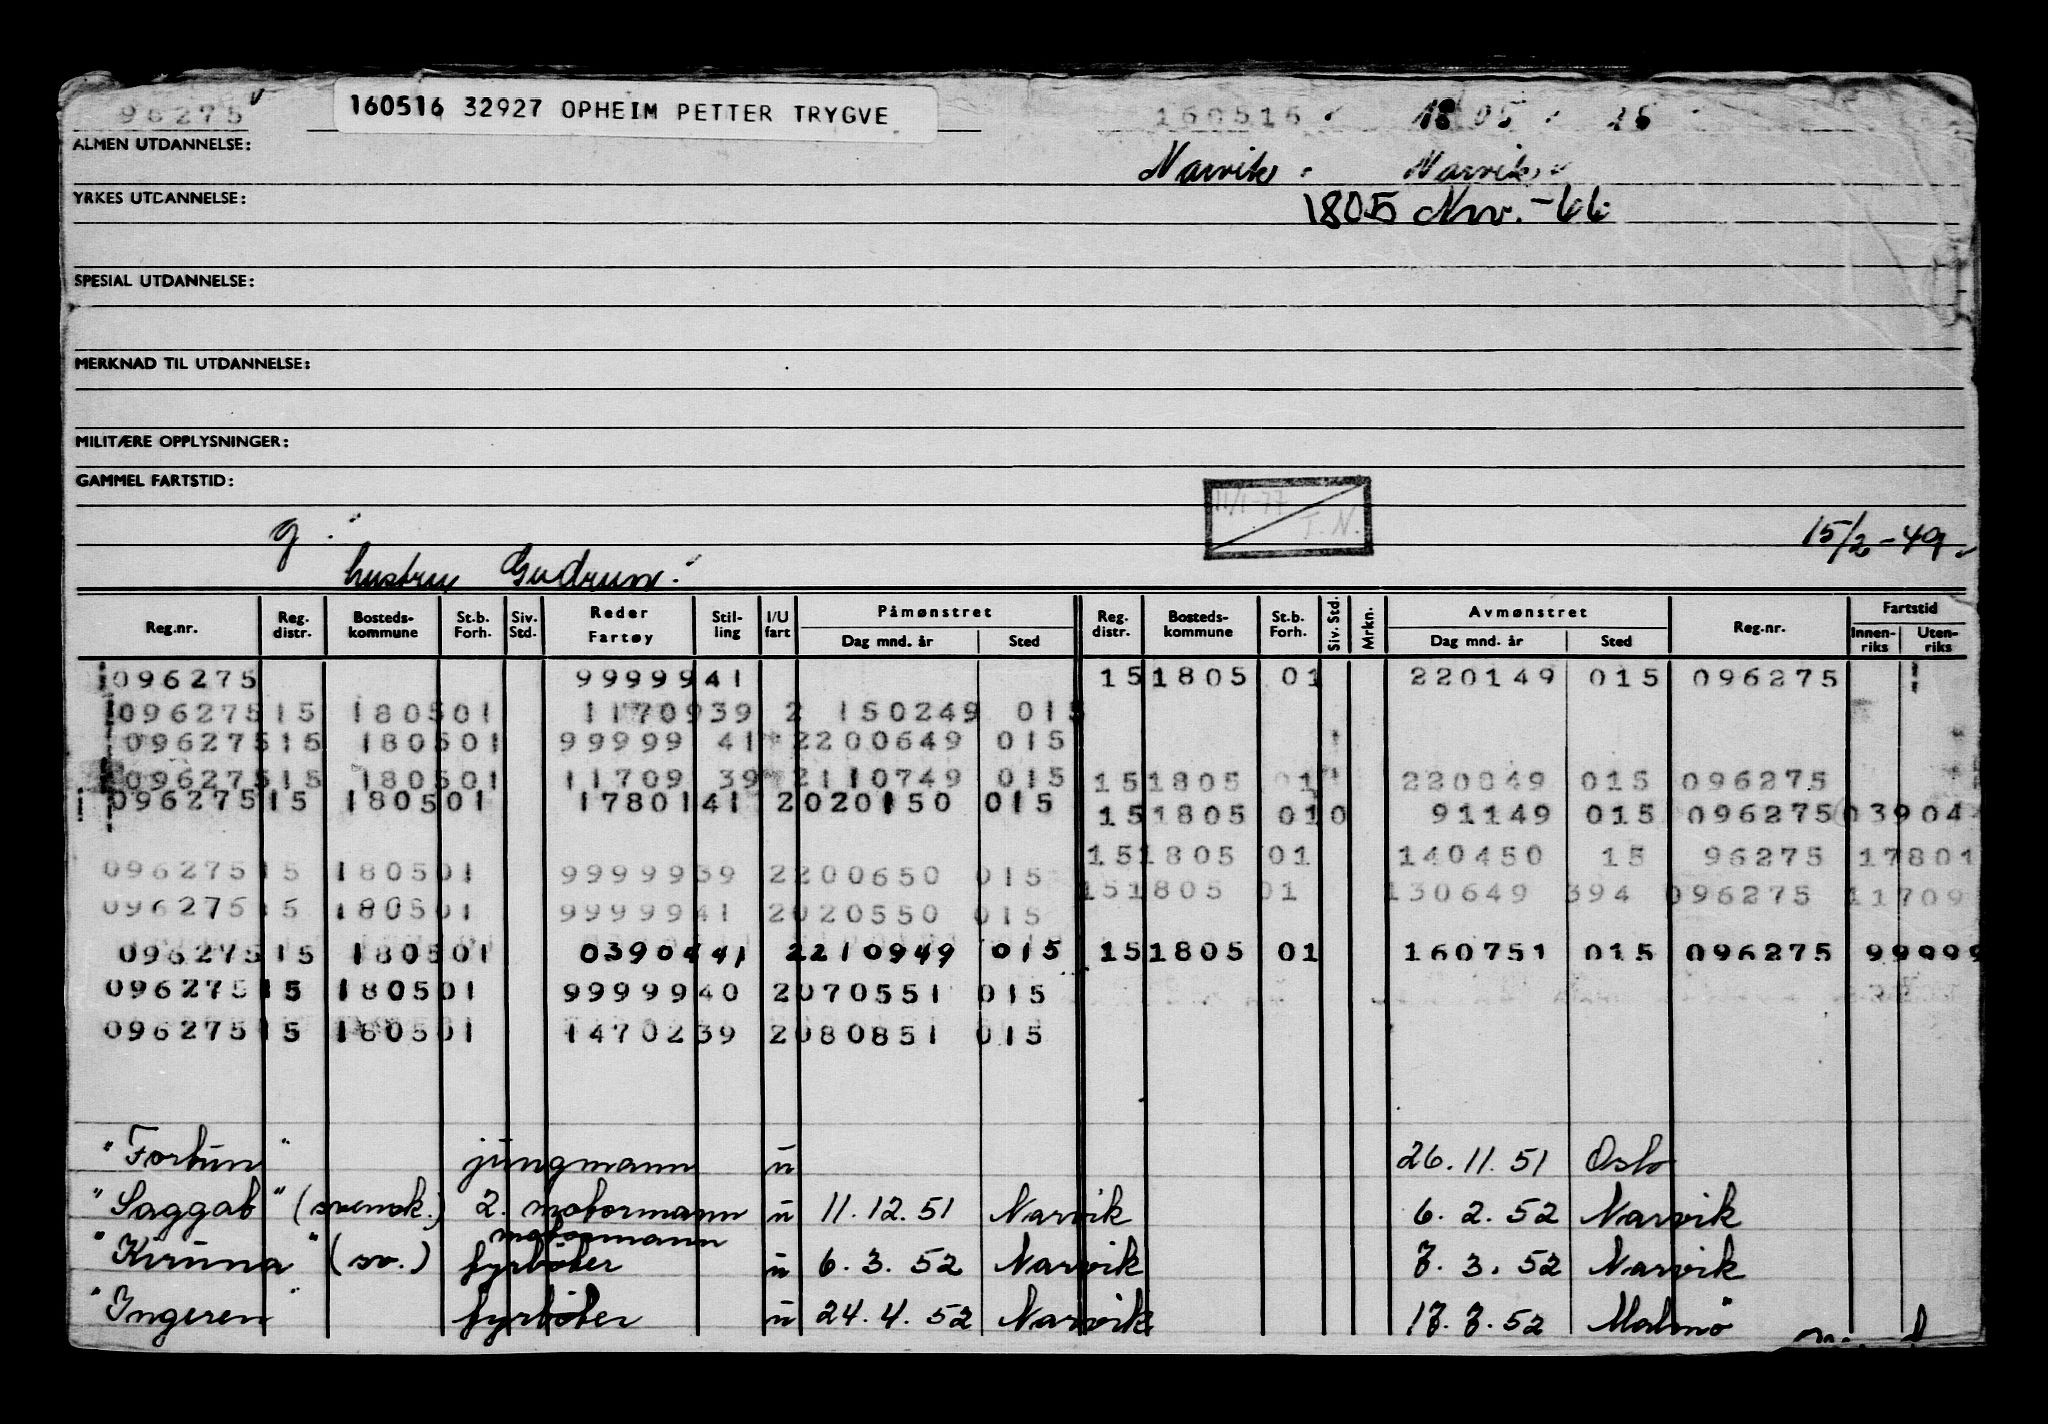 96275 160516 32927 OPHEIM PETTER TRYGVE 160516 18 05
ALMEN UTDANNELSE: Narvik Narvik
YRKES UTDANNELSE: 1805 Nrv. -66
SPESIAL UTDANNELSE:
MERKNAD TIL UTDANNELSE:
MILITÆRE OPPLYSNINGER:
GAMMEL FARTSTID:
11/1-77 T. N.
g. 15/2-49.
hustru Gudrun.
Reg.nr. Reg. distr. Bosteds-kommune St.b. Forh. Siv. Std. Reder Fartøy Stil-ling I/U fart Påmønstret Dag mnd. år Sted Reg. distr. Bosteds-kommune St.b. Forh. Siv. Std. Mrkn. Avmønstret Dag mnd. år Sted Reg.nr. Fartstid Innen-riks Uten-riks
096275 9999941 151805 01 220149 015 096275
09627515 180501 1170939 2 150249 015
09627515 180501 99999 41 2200649 015
09627515 180501 11709 39 2110749 015 151805 01 220849 015 096275
09627515 180501 1780141 2020150 015 151805 010 91149 015 096275 03904
151805 01 140450 15 96275 17801
09627515 180501 9999939 2200650 015
151805 01 130649 394 096275 11709
09627515 180501 9999941 2020550 015
09627515 180501 0390441 2210949 015 151805 01 160751 015 096275 99999
09627515 180501 9999940 2070551 015
09627515 180501 1470239 2080851 015
"Fortun" jungmann u 26.11.51 Oslo
"Saggat" (svensk.) 2. motormann u 11.12.51 Narvik 6.2.52 Narvik
motormann
"Kiruna" (sv.) fyrbøter u 6.3.52 Narvik 7.3.52 Narvik
"Ingeren" fyrbøter u 24.4.52 Narvik 17.7.52 Malmö